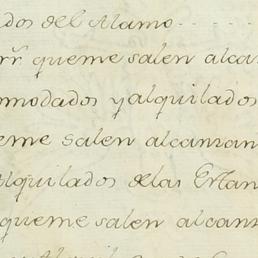 ados del Alamo
rr̃. queme salen alcan
omodados y alquilados
eme salen alcanzan
alquilados delas Estan
queme salen alcanz